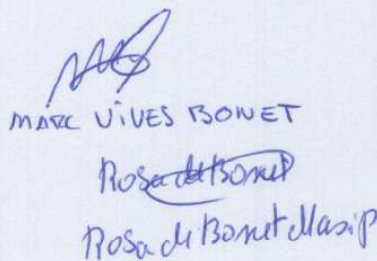 MARC ViVES BONET
Rosa Mª Bonet
Rosa Mª Bonet Masip